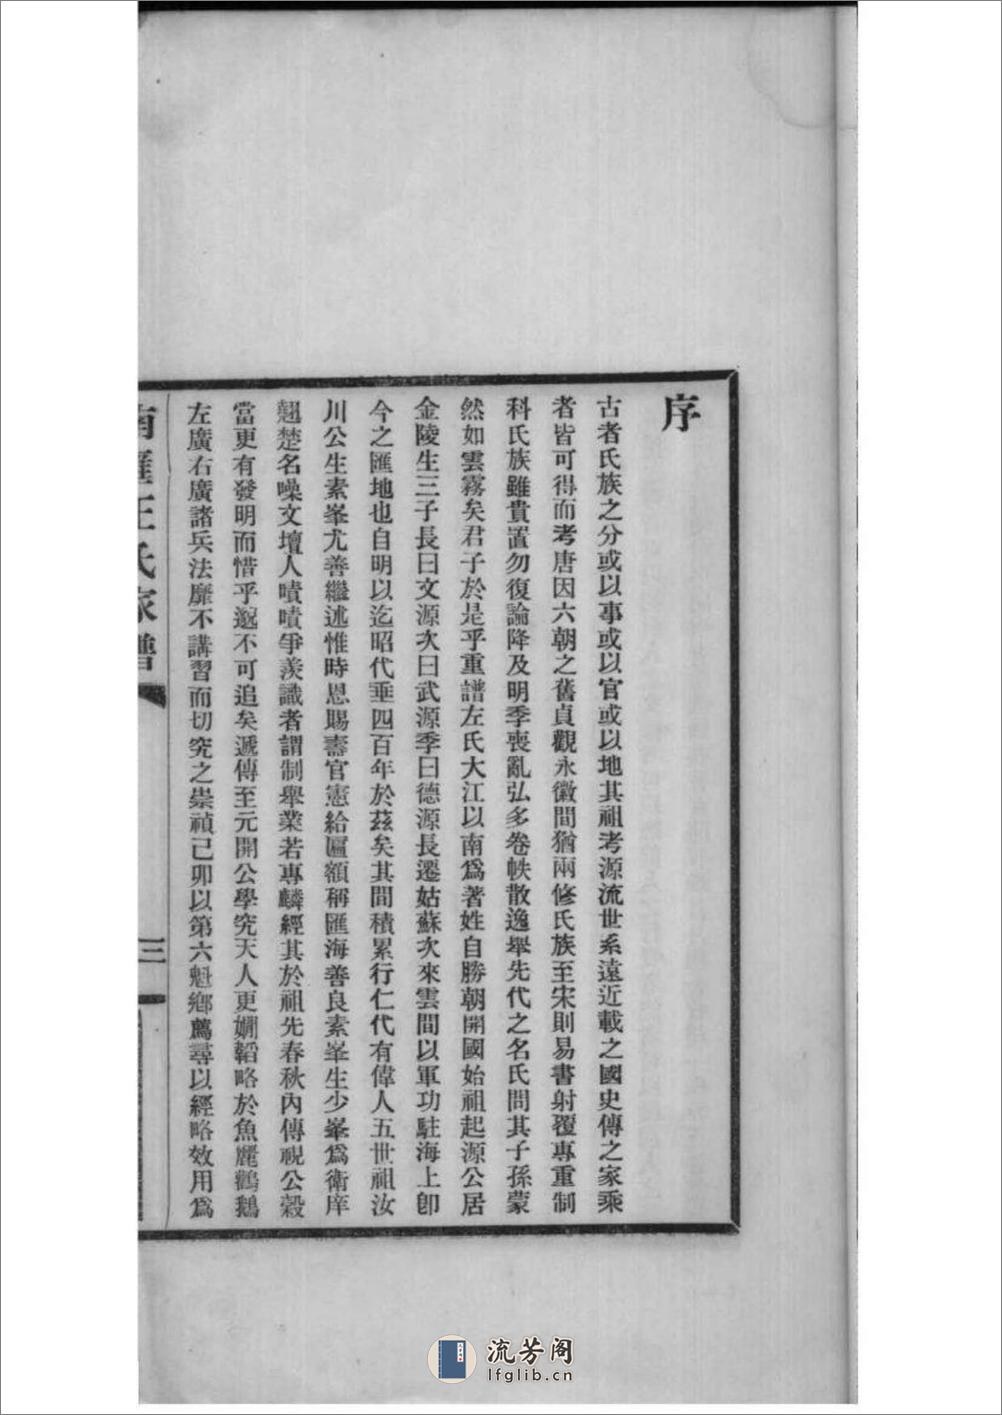 序
古者氏族之分或以事或以官或以地其祖考源流世系遠近載之國史傳之家乘
者皆可得而考唐因六朝之舊貞觀永徽間猶兩修氏族至宋則易書射覆專重制
科氏族雖貴置勿復論降及明季喪亂弘多卷帙散逸舉先代之名氏問其子孫蒙
然如雲霧矣君子於是乎重譜左氏大江以南爲著姓自勝朝開國始祖起源公居
金陵生三子長曰文源次曰武源季曰德源長遷姑蘇次來雲間以軍功駐海上卽
今之匯地也自明以迄昭代垂四百年於茲矣其間積累行仁代有偉人五世祖汝
川公生素峯尤善繼述惟時恩賜壽官憲給匾額稱匯海善良素峯生少峯爲衛庠
翹楚名噪文壇人嘖嘖爭羨識者謂制舉業若專麟經其於祖先春秋內傳視公穀
當更有發明而惜乎邈不可追矣遞傳至元開公學究天人更嫻韜略於魚麗鸛鵝
左廣右廣諸兵法靡不講習而切究之崇禎己卯以第六魁鄉薦尋以經略效用爲
南匯王氏家譜
三
流芳阁
lfglib.cn